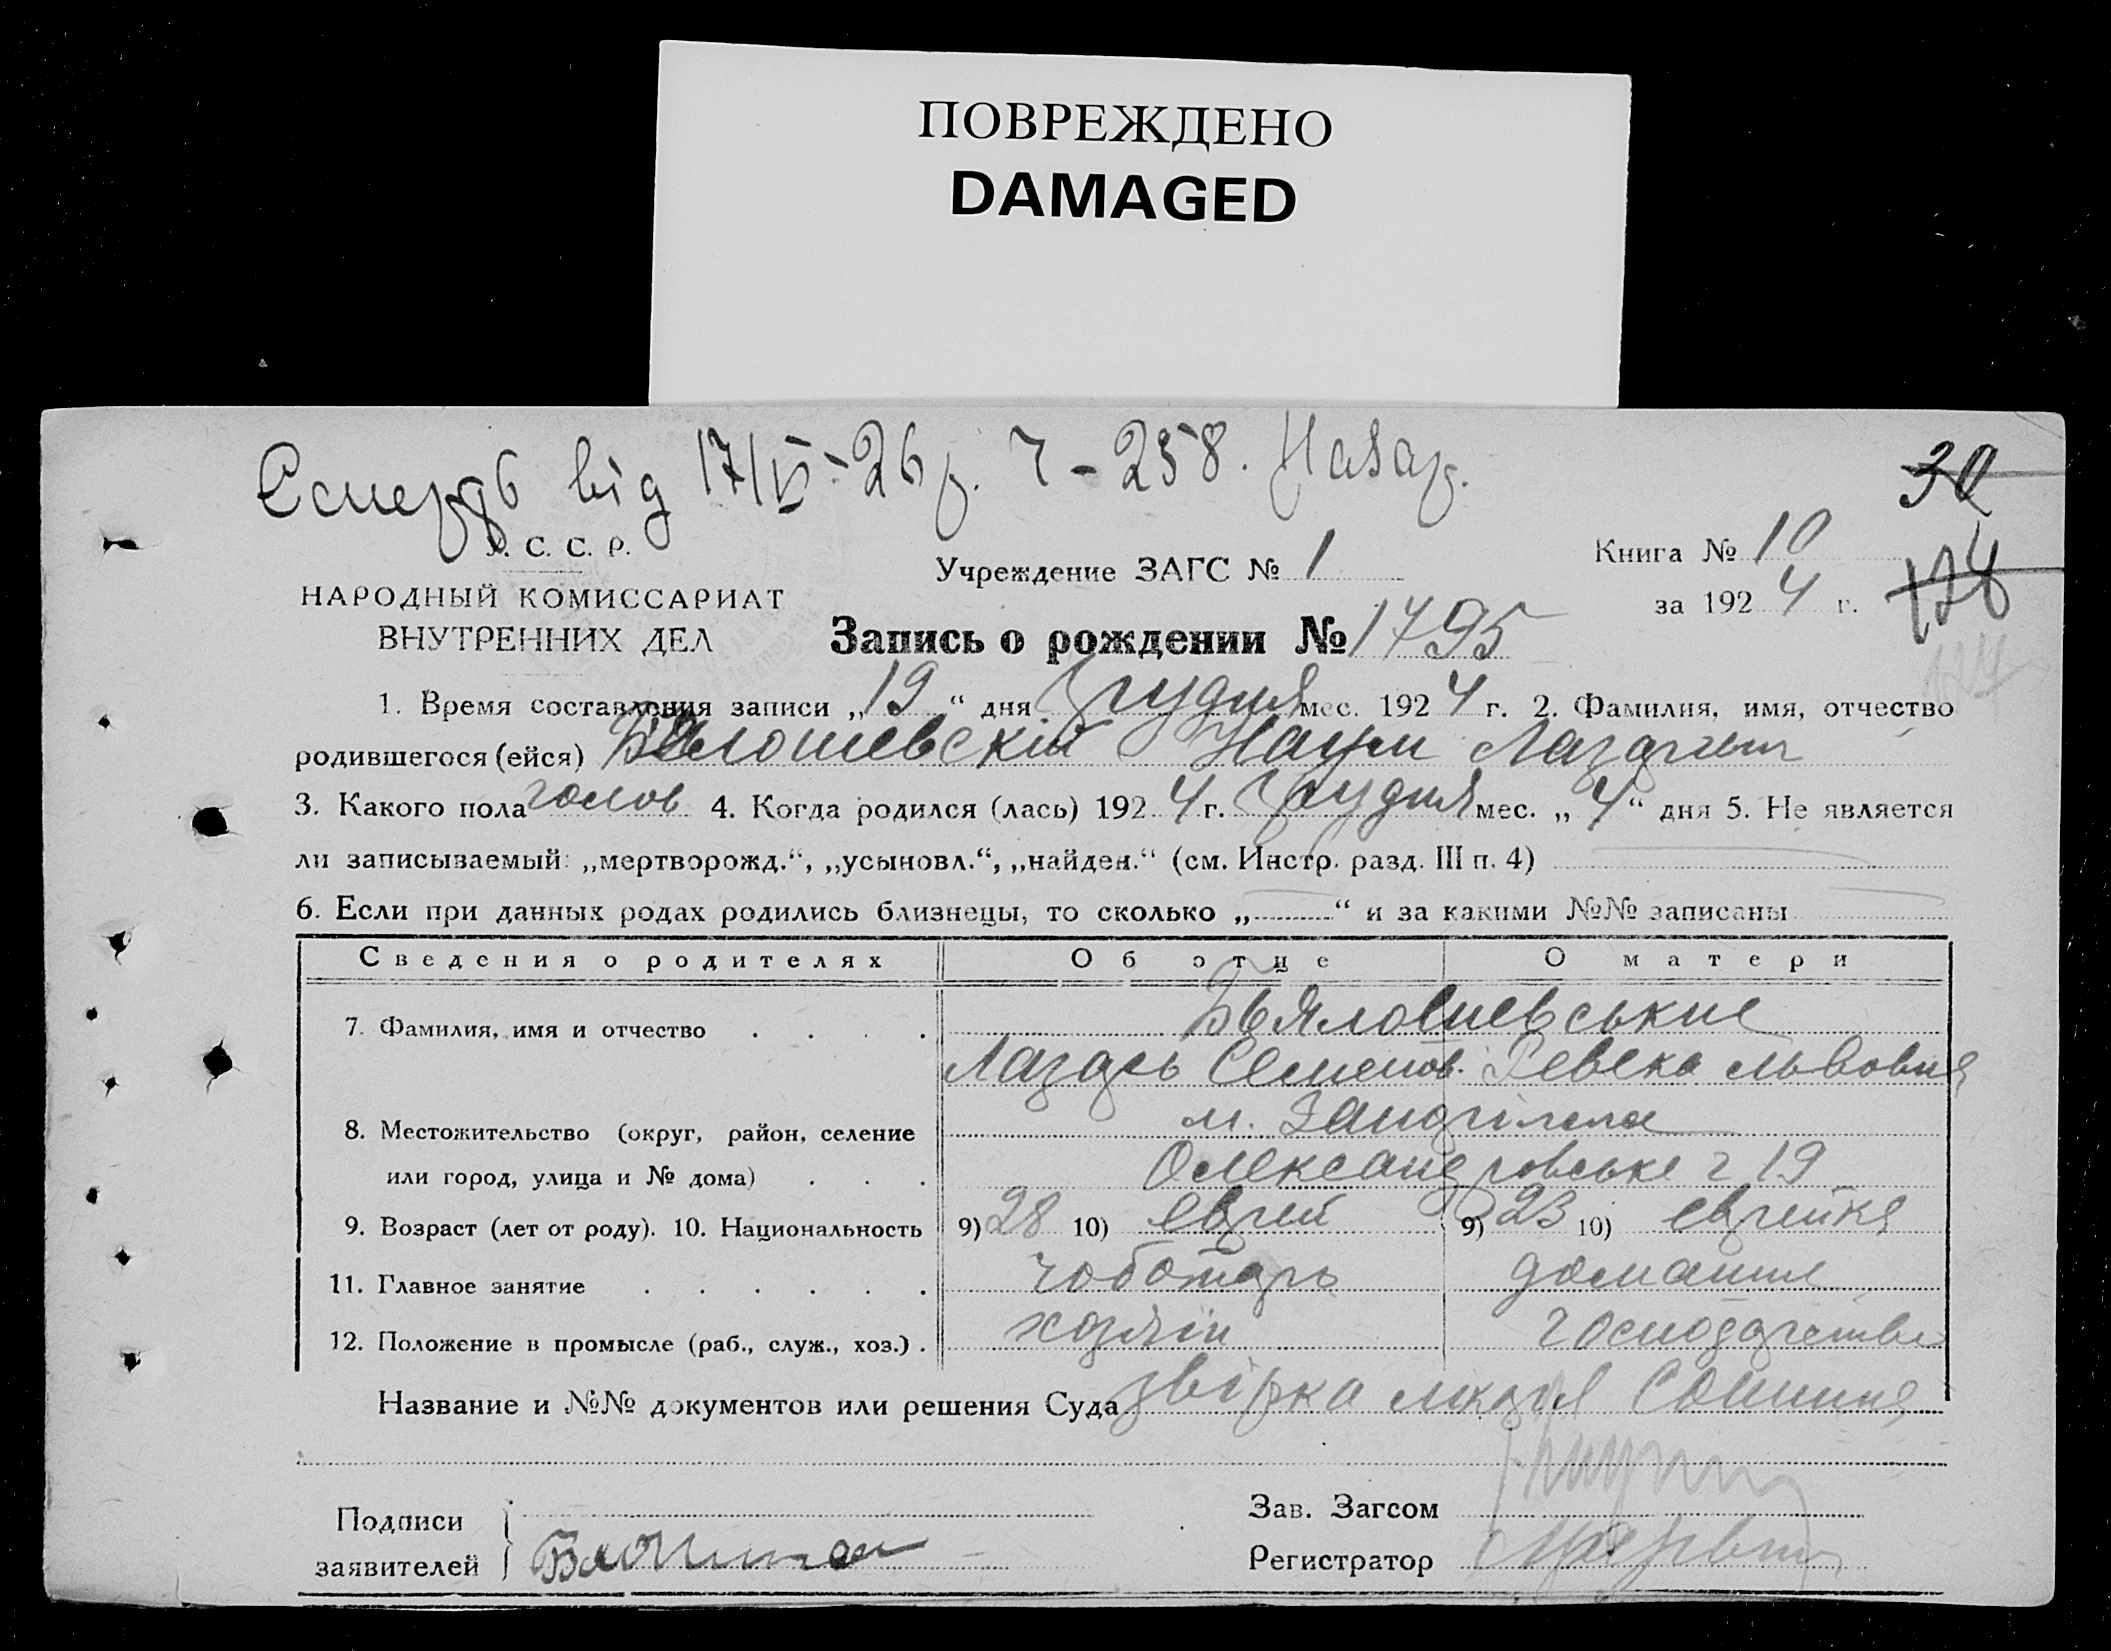 ПОВРЕЖДЕНО
DAMAGED
від 17/VI-26 р. ч-258. Назар.
30
С. С. Р.
НАРОДНЫЙ КОМИССАРИАТ
ВНУТРЕННИХ ДЕЛ
Учреждение ЗАГС № 1
Книга № 10
за 1924 г.
Запись о рождении № 1795
174
1. Время составления записи „19“ дня Грудня мес. 1924 г. 2. Фамилия, имя, отчество
родившегося (ейся) Наум Лазарев
3. Какого пола чолов 4. Когда родился (лась) 1924 г. Грудня мес. „4“ дня 5. Не является
ли записываемый: „мертворожд.“, „усыновл.“, „найден.“ (см. Инстр. разд. III п. 4)
6. Если при данных родах родились близнецы, то сколько „ “ и за какими №№ записаны
Сведения о родителях Об отце О матери
7. Фамилия, имя и отчество Бьяловшевськие
Лазарь Семенов. Ревека Львовна
8. Местожительство (округ, район, селение м.
или город, улица и № дома) Олександровська 19
9. Возраст (лет от роду). 10. Национальность 9) 28 10) еврей 9) 23 10) еврейка
11. Главное занятие чоботарь домашне
12. Положение в промысле (раб., служ., хоз.) хозяін господарство
Название и №№ документов или решения Суда лікаря
Подписи
заявителей
Зав. Загсом
Регистратор